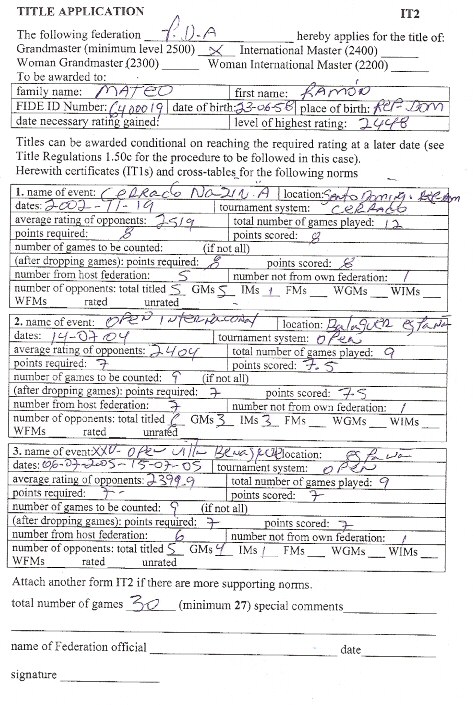 TITLE APPLICATION IT2
The following federation F.D.A hereby applies for the title of:
Grandmaster (minimum level 2500) x International Master (2400)
Woman Grandmaster (2300) Woman International Master (2200)
To be awarded to:
family name: MATEO first name: RAMÓN
FIDE ID Number: 6400019 date of birth: 23-06-58 place of birth: REP. DOM
date necessary rating gained: level of highest rating: 2448
Titles can be awarded conditional on reaching the required rating at a later date (see
Title Regulations 1.50c for the procedure to be followed in this case).
Herewith certificates (IT1s) and cross-tables for the following norms
1. name of event: CERRADO location: Santo Domingo Rep Dom
dates: 2002-11-19 tournament system: CERRADO
average rating of opponents: 2519 total number of games played: 12
points required: 8 points scored: 8
number of games to be counted: (if not all)
(after dropping games): points required: 8 points scored: 8
number from host federation: 5 number not from own federation: 1
number of opponents: total titled 5 GMs 5 IMs 1 FMs WGMs WIMs
WFMs rated unrated
2. name of event: OPEN INTERNACIONAL location: Balaguer España
dates: 14-07 04 tournament system: OPEN
average rating of opponents: 2404 total number of games played: 9
points required: 7 points scored: 7.5
number of games to be counted: 9 (if not all)
(after dropping games): points required: 7 points scored: 7.5
number from host federation: 7 number not from own federation: 1
number of opponents: total titled 6 GMs 3 IMs 3 FMs WGMs WIMs
WFMs rated unrated
3. name of event: XXV- OPEN Villa BENASQUE location: España
dates: 06-07-2005-15-07-05 tournament system: OPEN
average rating of opponents: 2399.9 total number of games played: 9
points required: 7- points scored: 7
number of games to be counted: 9 (if not all)
(after dropping games): points required: 7 points scored: 7
number from host federation: 6 number not from own federation: 1
number of opponents: total titled 5 GMs 4 IMs 1 FMs WGMs WIMs
WFMs rated unrated
Attach another form IT2 if there are more supporting norms.
total number of games 30 (minimum 27) special comments
name of Federation official date
signature